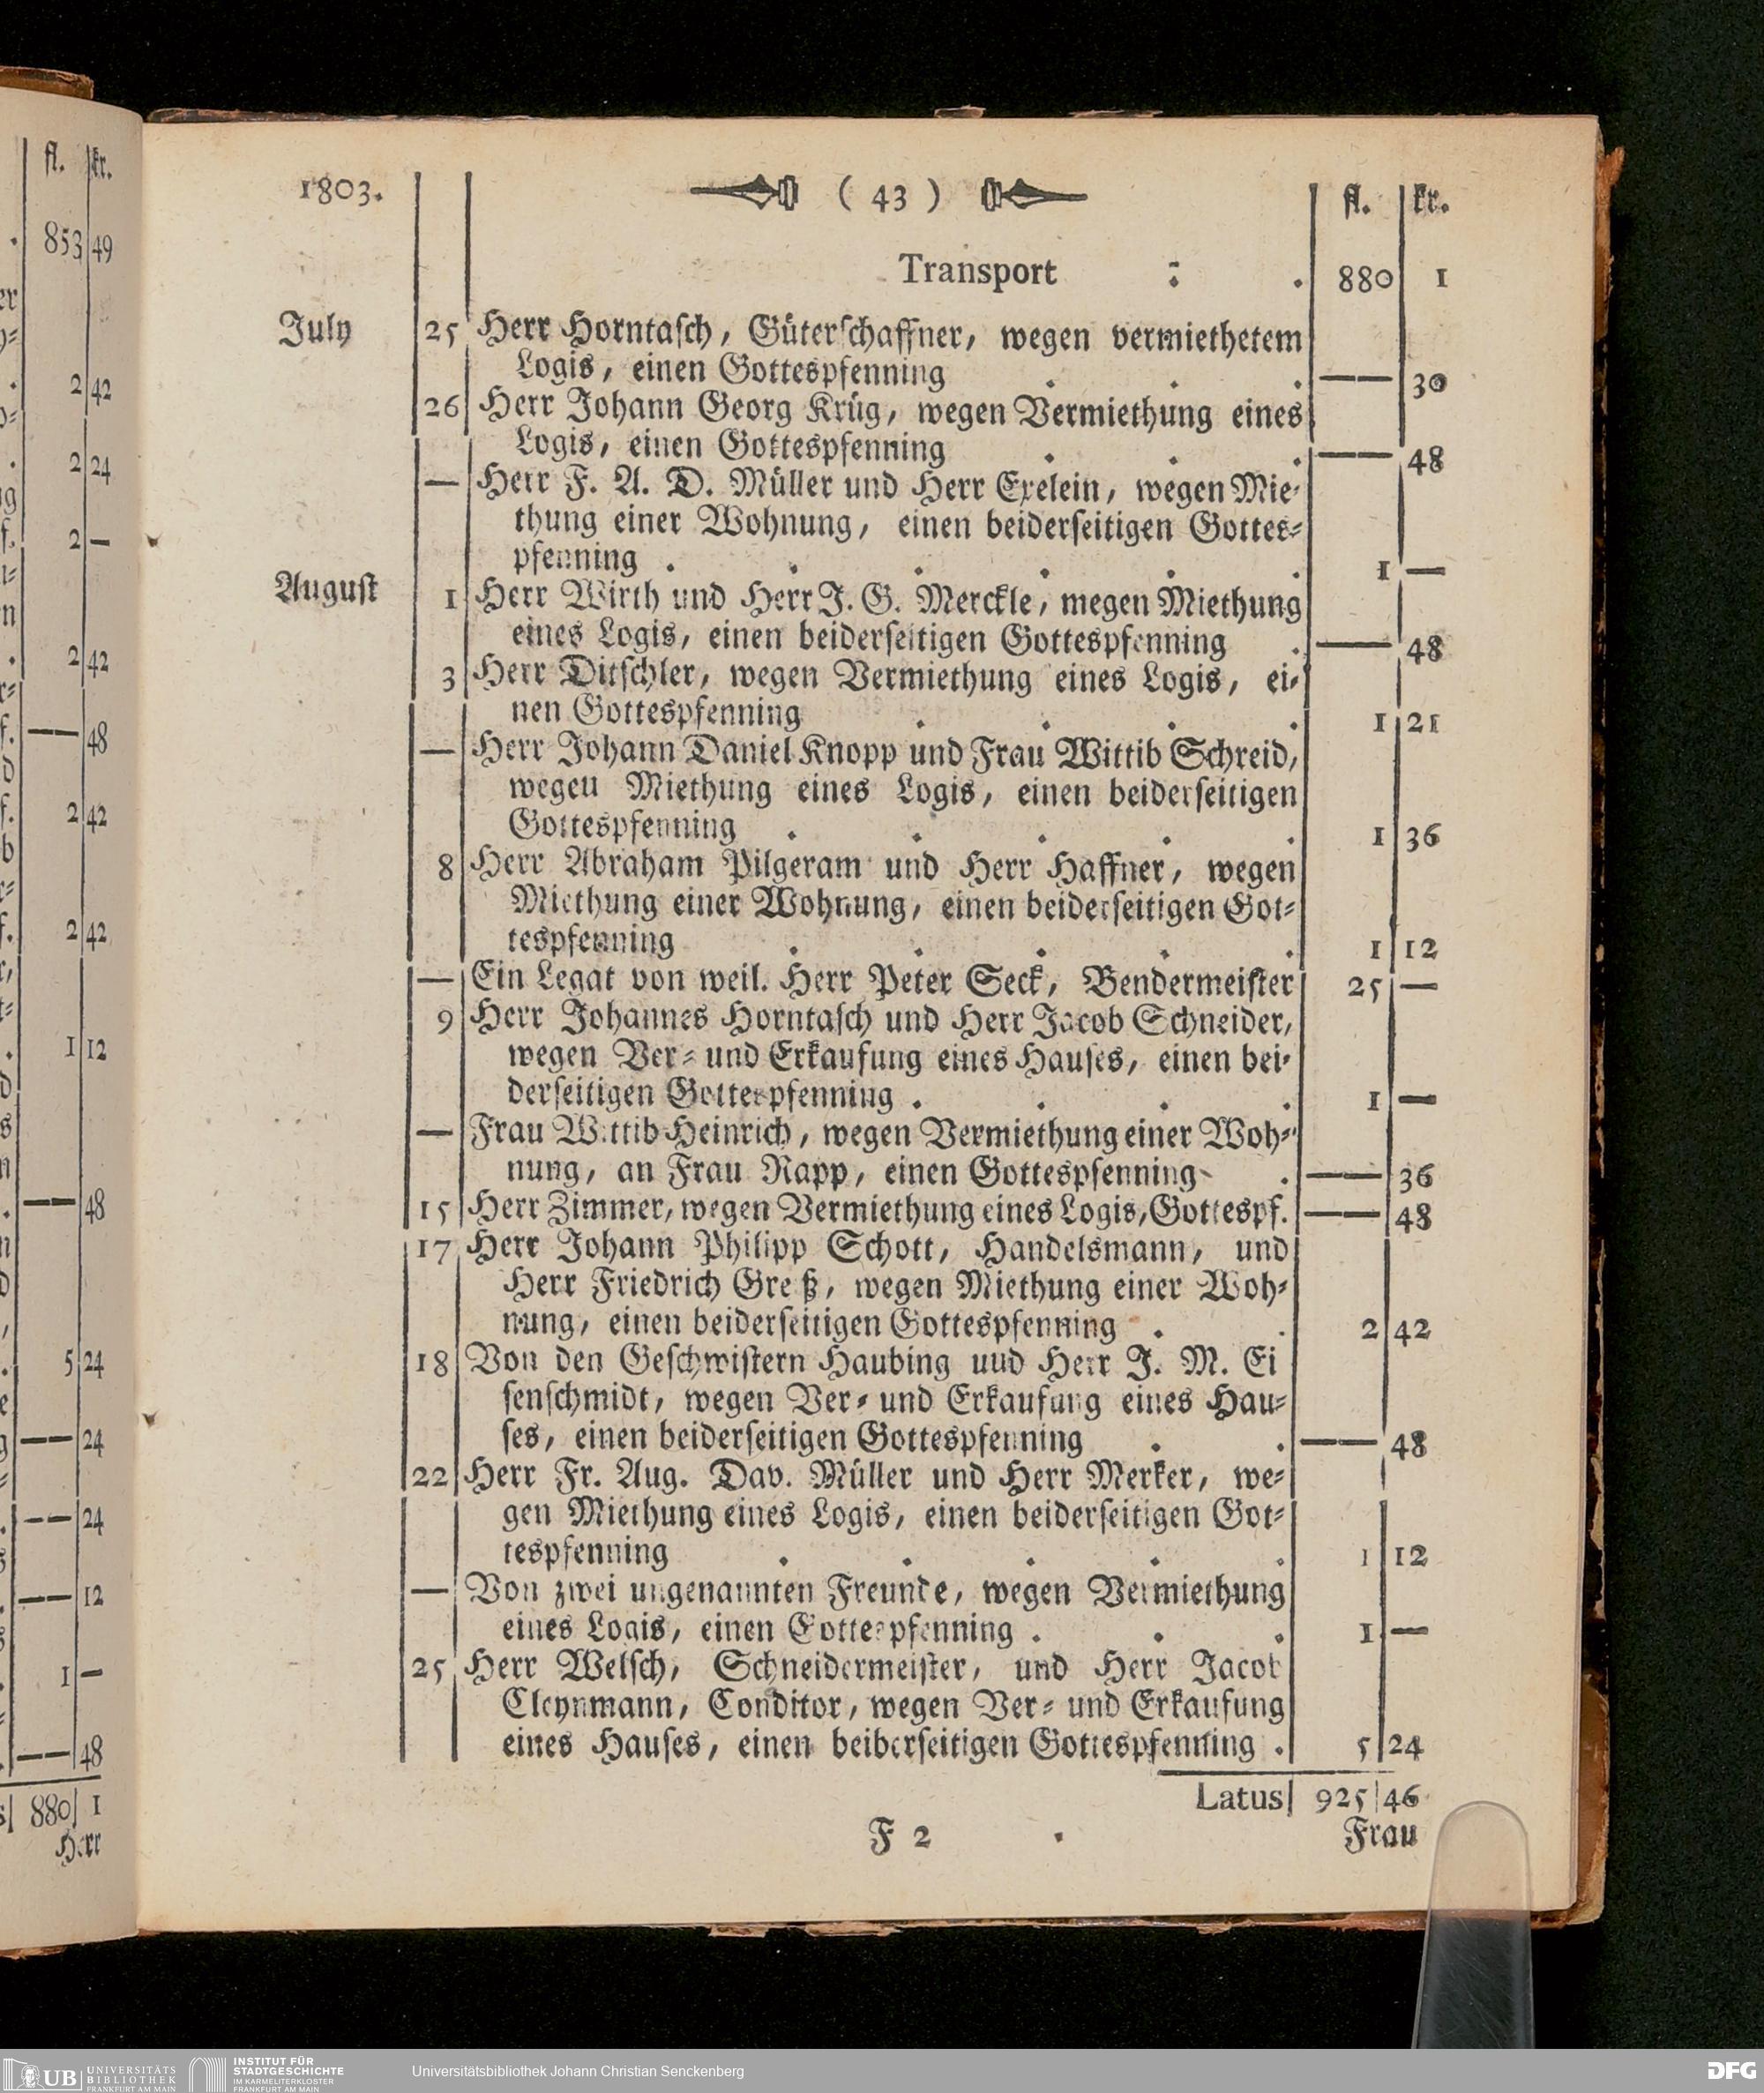 fl. kr.
853 49
2 42
2 24
2 —
2 42
— 48
2 42
2 42
1 12
— 48
5 24
— 24
— 24
— 12
1 —
— 48
880 1
Herr
1803. ( 43 ) fl. kr.
Transport : . 880 1
July 25 Herr Horntaſch, Güterſchaffner, wegen vermiethetem
Logis, einen Gottespfenning . . . —— 30
26 Herr Johann Georg Krüg, wegen Vermiethung eines
Logis, einen Gottespfenning . . . —— 48
— Herr F. A. D. Müller und Herr Exelein, wegen Mie-
thung einer Wohnung, einen beiderſeitigen Gottes-
pfenning . . . . . . 1 —
August 1 Herr Wirth und Herr J. G. Merckle, megen Miethung
eines Logis, einen beiderſeitigen Gottespfenning . —— 48
3 Herr Ditſchler, wegen Vermiethung eines Logis, ei-
nen Gottespfenning . . . . 1 21
— Herr Johann Daniel Knopp und Frau Wittib Schreid,
wegeu Miethung eines Logis, einen beiderſeitigen
Gottespfenning . . . . . 1 36
8 Herr Abraham Pilgeram und Herr Haffner, wegen
Miethung einer Wohnung, einen beiderſeitigen Got-
tespfenning . . . . . 1 12
— Ein Legat von weil. Herr Peter Seck, Bendermeiſter 25 —
9 Herr Johannes Horntaſch und Herr Jacob Schneider,
wegen Ver- und Erkaufung eines Hauſes, einen bei-
derſeitigen Gottespfenning . . . . 1 —
— Frau Wittib Heinrich, wegen Vermiethung einer Woh-
nung, an Frau Rapp, einen Gottespfenning . —— 36
15 Herr Zimmer, wegen Vermiethung eines Logis, Gottespf. —— 48
17 Herr Johann Philipp Schott, Handelsmann, und
Herr Friedrich Greß, wegen Miethung einer Woh-
nung, einen beiderſeitigen Gottespfenning . . 2 42
18 Von den Geſchwiſtern Haubing uud Herr J. M. Ei
ſenſchmidt, wegen Ver- und Erkaufung eines Hau-
ſes, einen beiderſeitigen Gottespfenning . . —— 48
22 Herr Fr. Aug. Dav. Müller und Herr Merker, we-
gen Miethung eines Logis, einen beiderſeitigen Got-
tespfenning . . . . . 1 12
— Von zwei ungenannten Freunde, wegen Vermiethung
eines Logis, einen Gottespfenning . . . 1 —
25 Herr Welſch, Schneidermeiſter, und Herr Jacob
Cleynmann, Conditor, wegen Ver- und Erkaufung
eines Hauſes, einen beiberſeitigen Gottespfenning . 5 24
Latus 925 46
F 2 Frau
UB UNIVERSITÄTS
BIBLIOTHEK
FRANKFURT AM MAIN
INSTITUT FÜR
STADTGESCHICHTE
IM KARMELITERKLOSTER
FRANKFURT AM MAIN
Universitätsbibliothek Johann Christian Senckenberg
DFG